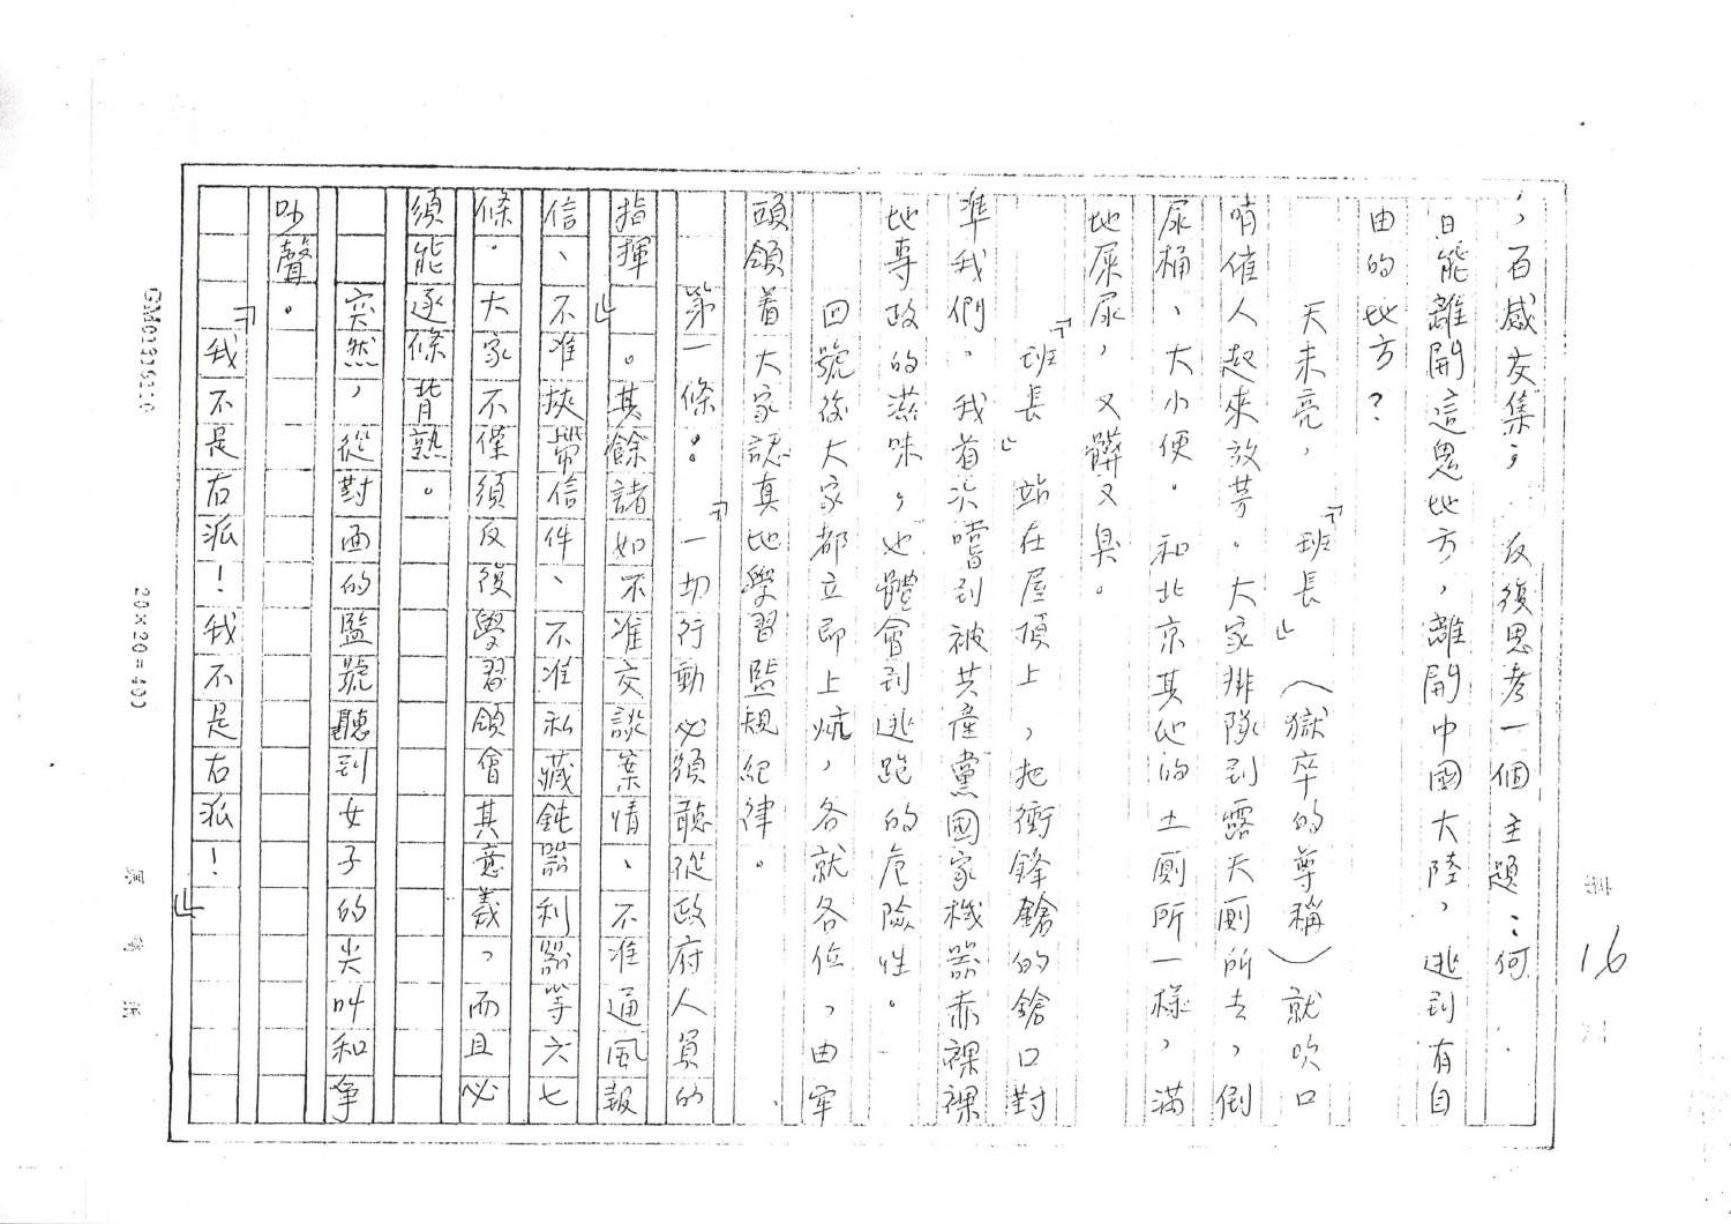 ，百感交集；反復思考一個主題：何
日能離開這恩地方，離開中國大陸，逃到有自
由的地方？
天未亮，『班長』（獄卒的尊稱）就吹口
哨催人起來放芳。大家排隊到露天厠所去，倒
尿桶、大小便。和北京其他的土厠所一樣，滿
地屎尿，又髒又臭。
『班長』站在屋頂上，把衝鋒鎗的鎗口對
準我們。我首次嚐到被共產黨國家機器赤裸裸
地專政的滋味，也體會到逃跑的危險性。
回號後大家都立即上炕，各就各位，由牢
頭領着大家認真地學習監規紀律。
第一條：『一切行動必須聽從政府人員的
指揮』。其餘諸如不准交談案情、不准通風報
信、不准挾帶信件、不准私藏鈍器利器等六七
條。大家不僅須反復學習領會其意義，而且必
須能逐條背熟。
突然，從對面的監號聽到女子的尖叫和爭
吵聲。
『我不是右派！我不是右派！』
16
20×20=400